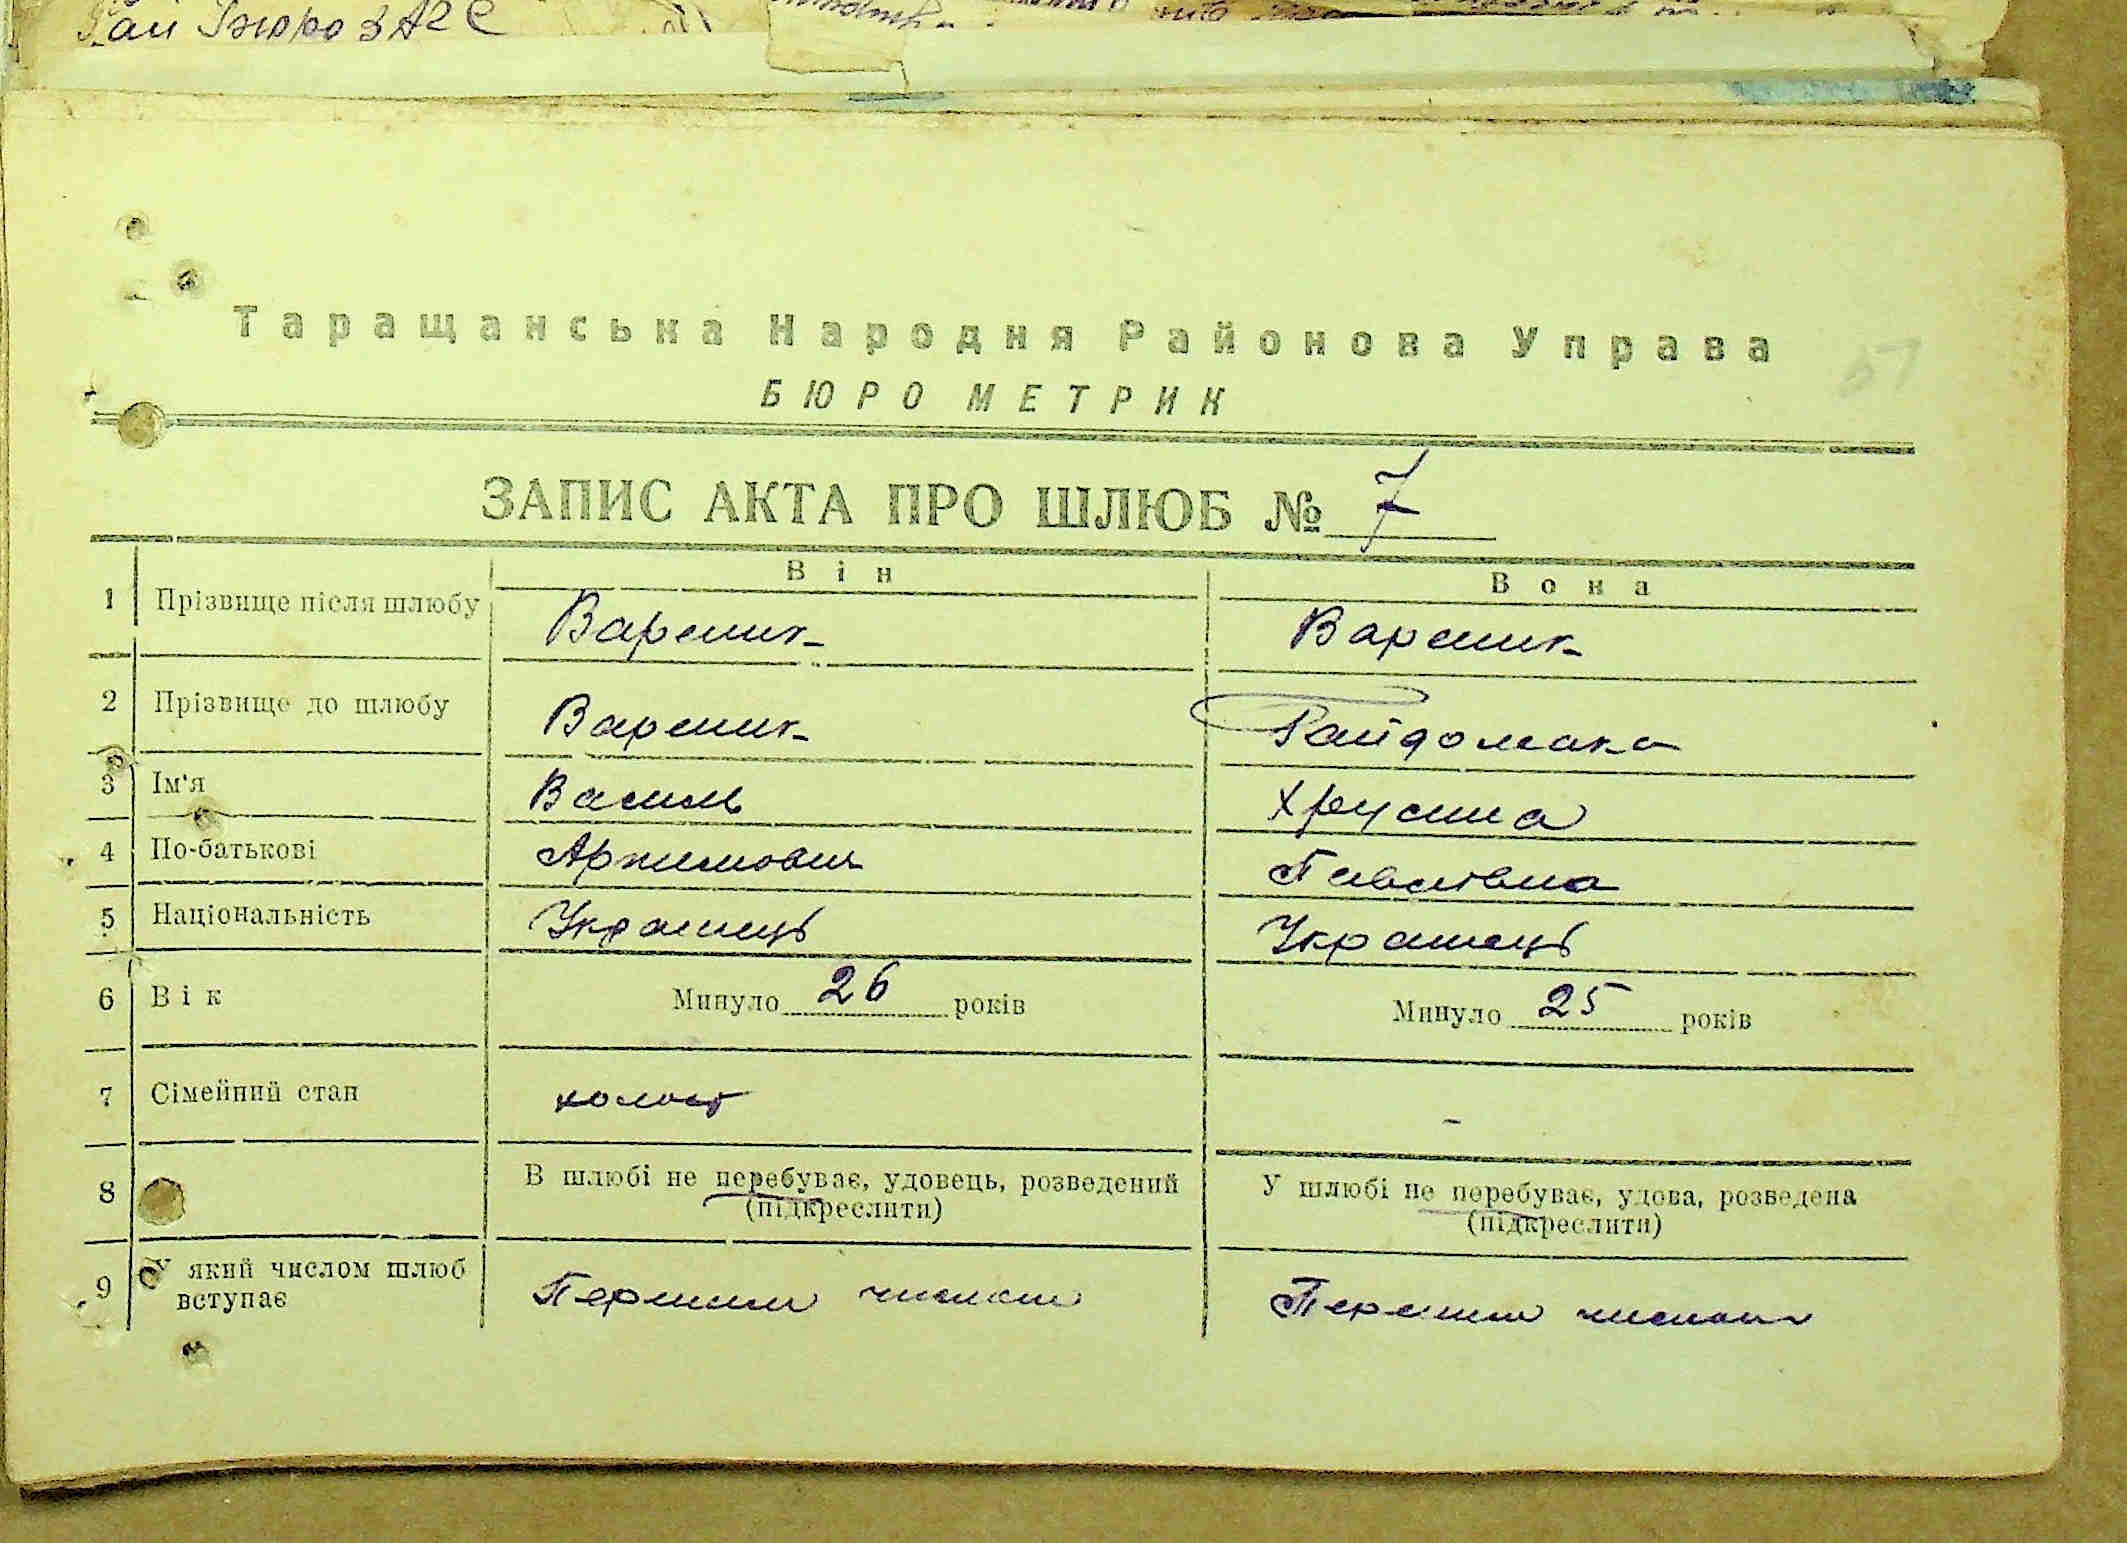 Рай Бюро ЗАГС
Таращанська Народня Районова Управа
БЮРО МЕТРИК
ЗАПИС АКТА ПРО ШЛЮБ № 7
Він Вона
1 Прізвище після шлюбу Вареник Вареник
2 Прізвище до шлюбу Вареник Гайдомака
3 Ім'я Василь Хрусина
4 По-батькові Артимович Павлівна
5 Національність Українець Українець
6 Вік Минуло 26 років Минуло 25 років
7 Сімейний стан холост -
8 В шлюбі не перебуває, удовець, розведений У шлюбі не перебуває, удова, розведена
(підкреслити) (підкреслити)
9 У який числом шлюб Першим числом Першим числом
вступає